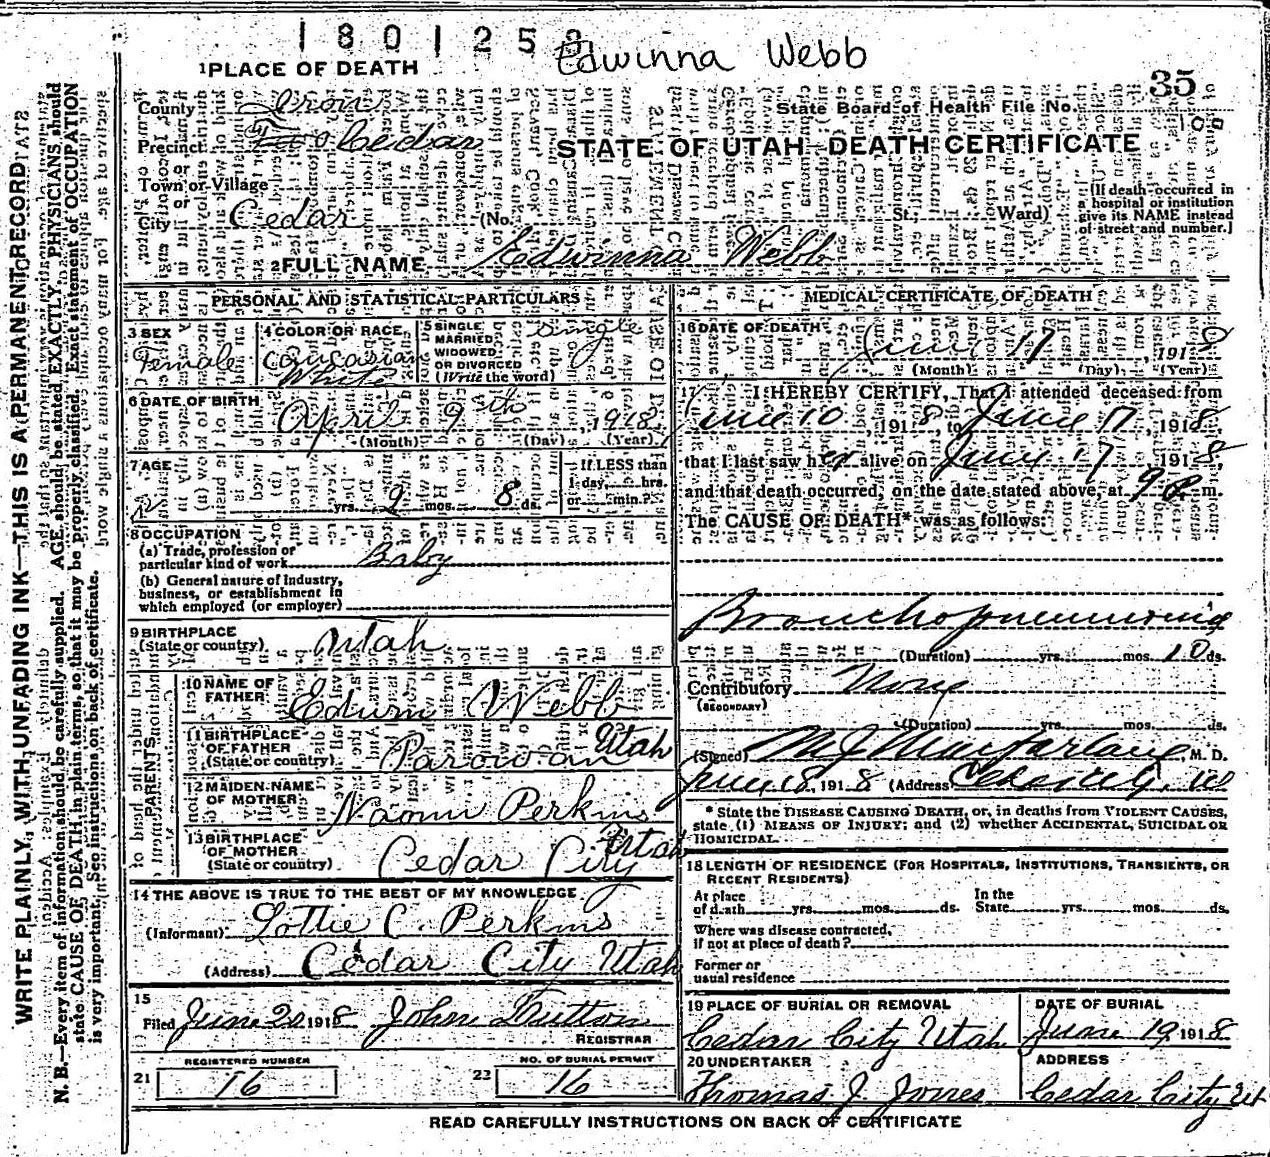 1801252
Edwinna Webb
35
1 PLACE OF DEATH
County Iron
State Board of Health File No.
Precinct Cedar
STATE OF UTAH—DEATH CERTIFICATE
or
Town or Village
or
City Cedar (No. St., Ward)
[If death occurred in a hospital or institution give its NAME instead of street and number.]
2 FULL NAME Edwinna Webb
PERSONAL AND STATISTICAL PARTICULARS
3 SEX Female
4 COLOR OR RACE, Caucasian White
5 SINGLE MARRIED WIDOWED OR DIVORCED (Write the word) Single
6 DATE OF BIRTH April 9th, 1918
(Month) (Day) (Year)
7 AGE
yrs. 2 mos. 8 ds.
If LESS than 1 day, hrs. or min.?
8 OCCUPATION
(a) Trade, profession or particular kind of work Baby
(b) General nature of Industry, business, or establishment in which employed (or employer)
9 BIRTHPLACE (State or country) Utah
PARENTS
10 NAME OF FATHER Edwin Webb
11 BIRTHPLACE OF FATHER (State or country) Parowan Utah
12 MAIDEN NAME OF MOTHER Naomi Perkins
13 BIRTHPLACE OF MOTHER (State or country) Cedar City Utah
14 THE ABOVE IS TRUE TO THE BEST OF MY KNOWLEDGE
(Informant) Lottie C. Perkins
(Address) Cedar City Utah
15
Filed June 20 1918 John
REGISTRAR
REGISTERED NUMBER
21 16
NO. OF BURIAL PERMIT
22 16
MEDICAL CERTIFICATE OF DEATH
16 DATE OF DEATH June 17, 1918
(Month) (Day) (Year)
17 I HEREBY CERTIFY, That I attended deceased from
June 10, 1918, to June 17, 1918,
that I last saw her alive on June 17 1918,
and that death occurred, on the date stated above, at 9 P. m.
The CAUSE OF DEATH* was as follows:
Bronchopneumonia
(Duration) yrs. mos. 10 ds.
Contributory None
(SECONDARY)
(Duration) yrs. mos. ds.
(Signed) M J Macfarlane, M. D.
June 18, 1918 (Address)
* State the DISEASE CAUSING DEATH, or, in deaths from VIOLENT CAUSES, state (1) MEANS OF INJURY; and (2) whether ACCIDENTAL, SUICIDAL OR HOMICIDAL.
18 LENGTH OF RESIDENCE (FOR HOSPITALS, INSTITUTIONS, TRANSIENTS, OR RECENT RESIDENTS)
At place of death yrs. mos. ds. In the State yrs. mos. ds.
Where was disease contracted, if not at place of death?
Former or usual residence
19 PLACE OF BURIAL OR REMOVAL Cedar City Utah
DATE OF BURIAL June 19 1918
20 UNDERTAKER Thomas J. Jones
ADDRESS Cedar City Ut
READ CAREFULLY INSTRUCTIONS ON BACK OF CERTIFICATE
WRITE PLAINLY, WITH UNFADING INK—THIS IS A PERMANENT RECORD
N. B.—Every item of information should be carefully supplied. AGE should be stated EXACTLY. PHYSICIANS should
state CAUSE OF DEATH in plain terms, so that it may be properly classified. Exact statement of OCCUPATION
is very important. See instructions on back of certificate.